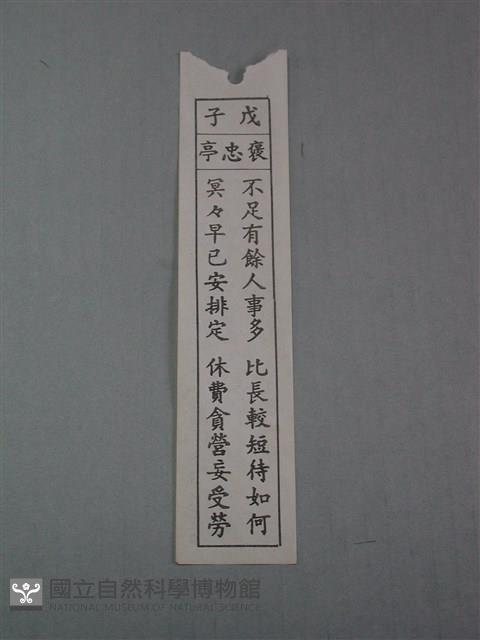 戊子
褒忠亭
不足有餘人事多 比長較短待如何
冥々早已安排定 休費貪營妄受勞
國立自然科學博物館
NATIONAL MUSEUM OF NATURAL SCIENCE